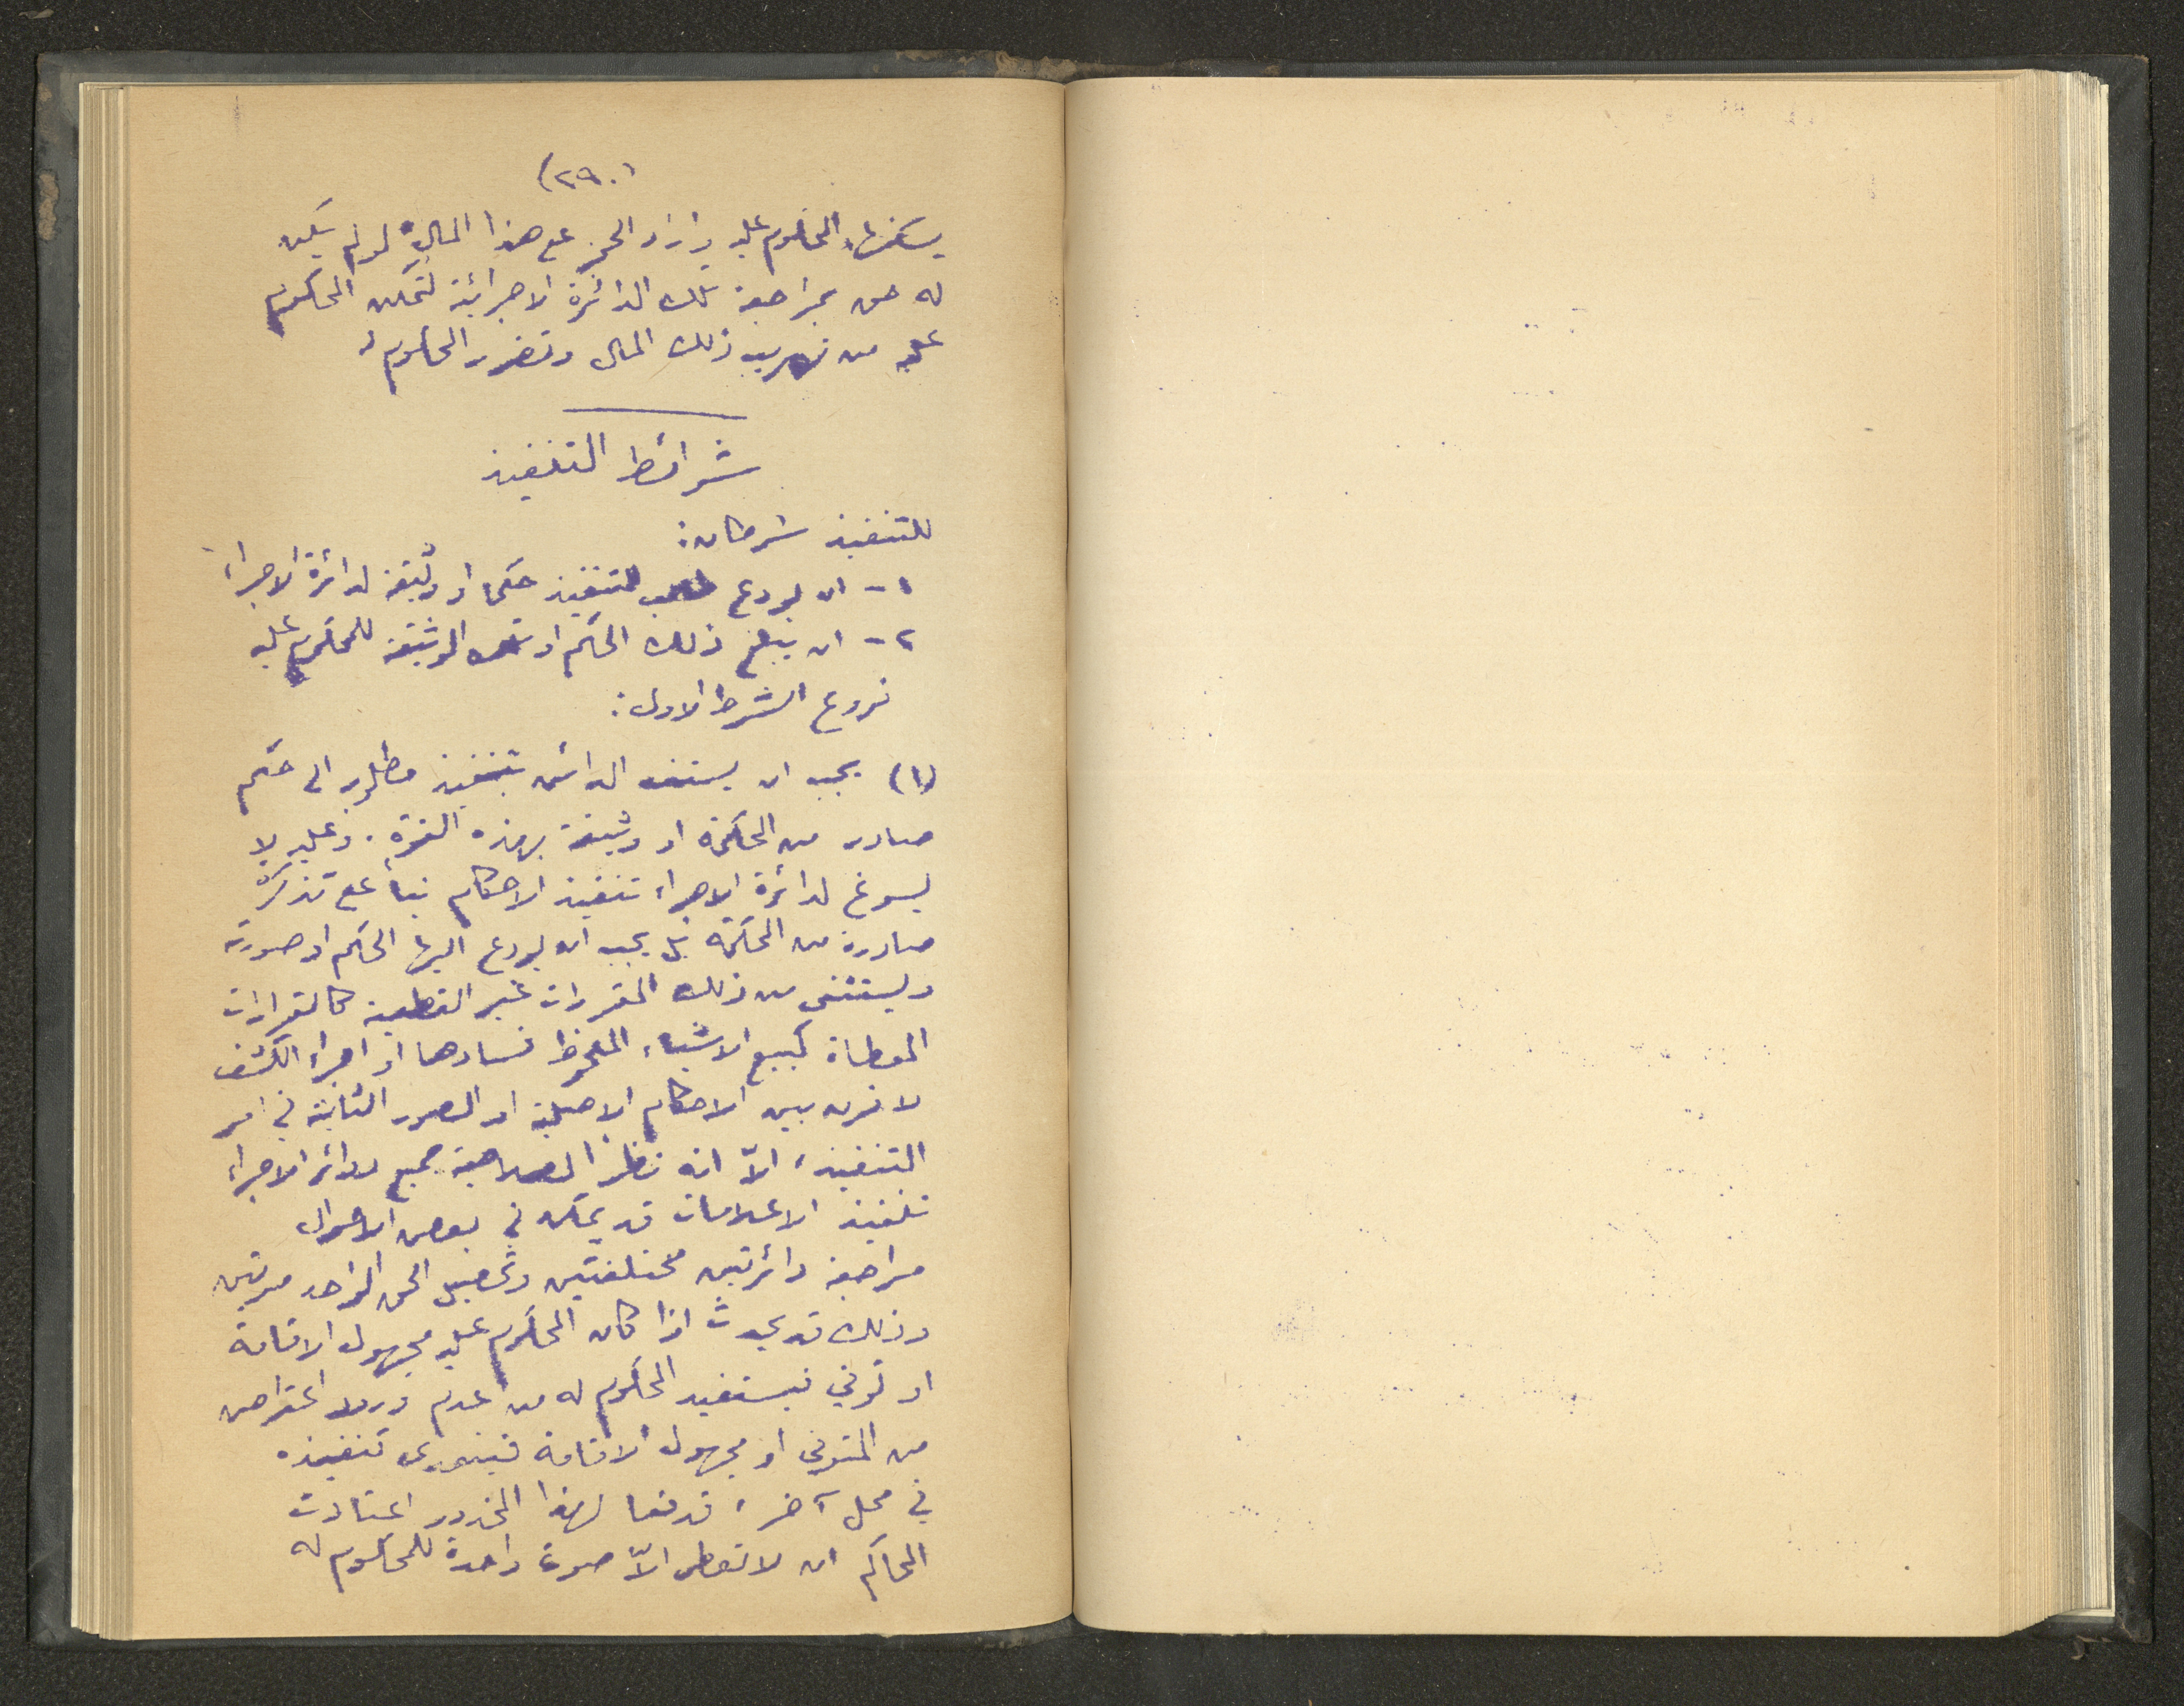 (٢٩٠)
يسكنها المحكوم عليه واراد الحجز على هذا المال لو لم يكن
له حق بمراجعة تلك الدائرة الاجرائية لتمكن المحكوم
عليه من تهريب ذلك المال وتضرر المحكوم له
شرائط التنفيذ
للتنفيذ شرطان:
١- ان يودع طالب التنفيذ حكما او وثيقة لدائرة الاجراء
٢- ان يبلغ ذلك الحكم او تلك الوثيقة للمحكوم عليه
فروع الشرط الاول:
(١) يجب ان يستند الدائن بتنفيذ مطلوبه الى حكم
صادر من المحكمة او وثيقة بهذه القوة. وعليه لا
يسوغ لدائرة الاجراء تنفيذ الاحكام بناءً على تذكرة
صادرة من المحكمة بل يجب ان يودع اليها الحكم او صورته
ويستثنى من ذلك المقررات غير القطعية كالقرارات
المعطاة كبيع الاشياء الملحوظ فسادها او اجراء الكشف
لا فرق بين الاحكام الاصلية او الصور الثانية في امر
التنفيذ، الاّ انه نظرا لصلاحية جميع دوائر الاجراء
تنفيذ الاعلامات قد يمكن في بعض الاحوال
مراجعة دائرتين مختلفتين وتحصيل الحق الواحد مرتين
وذلك قد يحدث اذا كان المحكوم عليه مجهول الاقامة
او توفي فيستفيد المحكوم له من عدم ورود اعتراض
من المتوفي او مجهول الاقامة تنفيذه
في محل آخر، فدفعا لهذا المحذور اعتادت
المحاكم ان لا تعطي الاّ صورة واحدة للمحكوم له